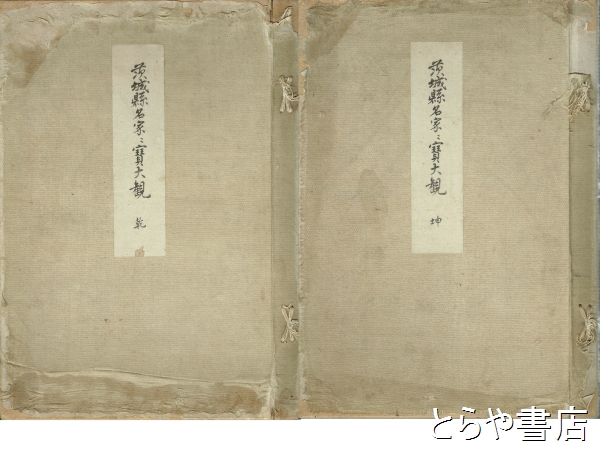 茨城縣名家〻寶大観
乾
茨城縣名家〻寶大観
坤
とらや書店